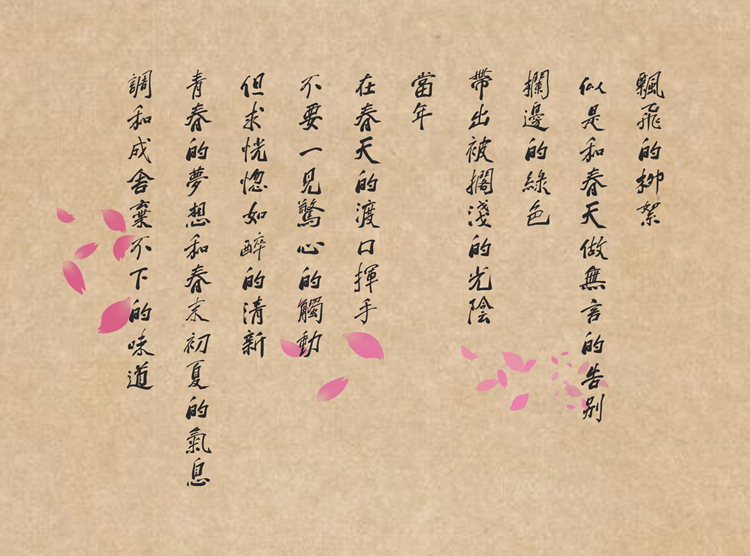 飄飛的柳絮
似是和春天做無言的告別
攔邊的綠色
帶出被擱淺的光陰
當年
在春天的渡口揮手
不要一見驚心的觸動
但求恍惚如醉的清新
青春的夢想和春末初夏的氣息
調和成舍棄不下的味道